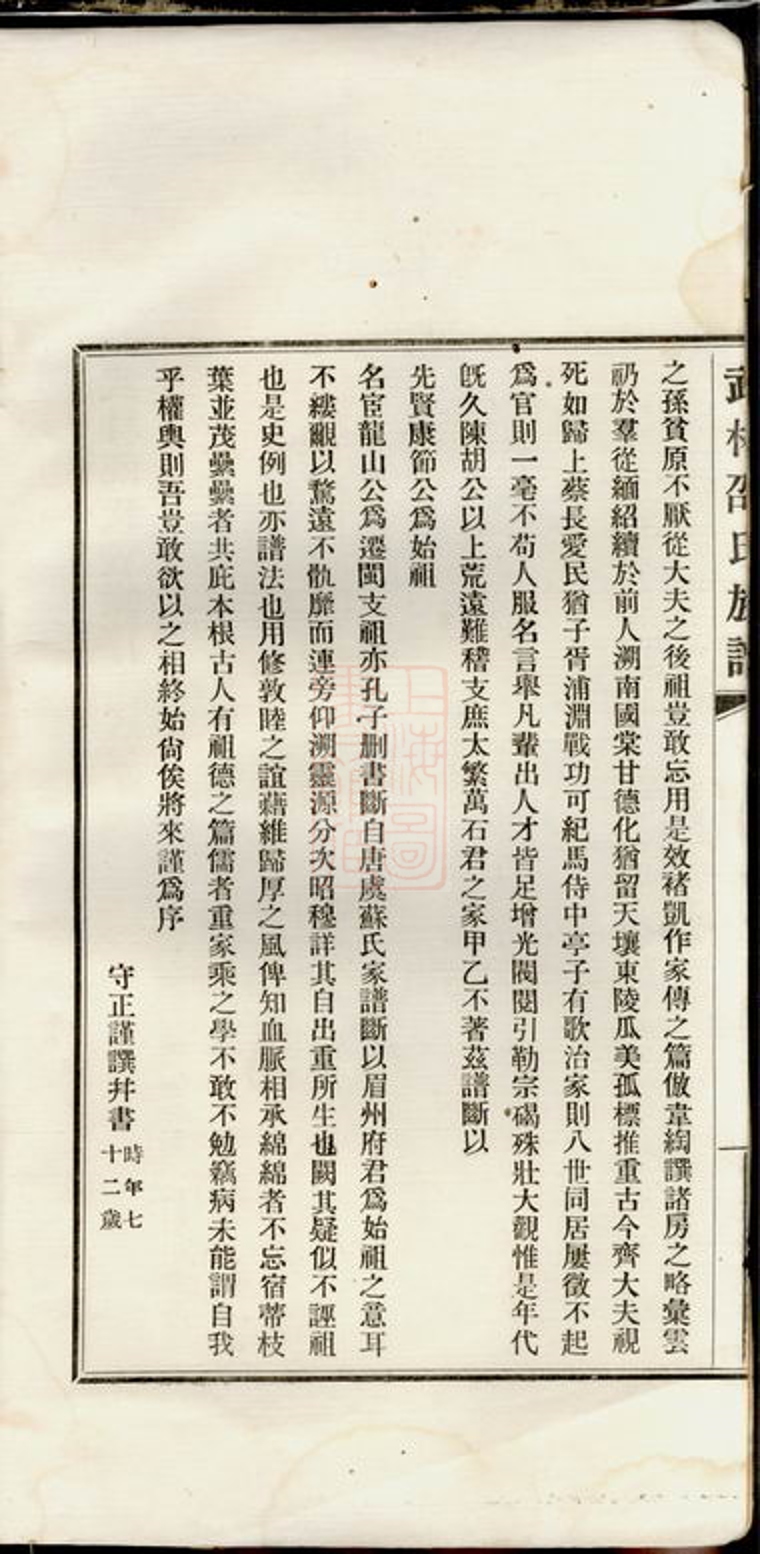 武林邵氏族譜
之孫貧原不厭從大夫之後祖豈敢忘用是效褚凱作家傳之篇倣韋綯譔諸房之略彙雲
礽於羣從緬紹續於前人溯南國棠甘德化猶留天壤東陵瓜美孤標推重古今齊大夫視
死如歸上蔡長愛民猶子胥浦淵戰功可紀馬侍中亭子有歌治家則八世同居屢徵不起
爲官則一毫不苟人服名言舉凡輩出人才皆足增光閥閱引勒宗碣殊壯大觀惟是年代
旣久陳胡公以上荒遠難稽支庶太繁萬石君之家甲乙不著茲譜斷以
先賢康節公爲始祖
名宦龍山公爲遷閩支祖亦孔子刪書斷自唐虞蘇氏家譜斷以眉州府君爲始祖之意耳
不縷覼以騖遠不骩靡而連旁仰溯靈源分次昭穆詳其自出重所生也闕其疑似不誣祖
也是史例也亦譜法也用修敦睦之誼藉維歸厚之風俾知血脈相承綿綿者不忘宿蒂枝
葉並茂纍纍者共庇本根古人有祖德之篇儒者重家乘之學不敢不勉竊病未能謂自我
乎權輿則吾豈敢欲以之相終始尙俟將來謹爲序
守正謹譔幷書
時年七
十二歲
上海圖